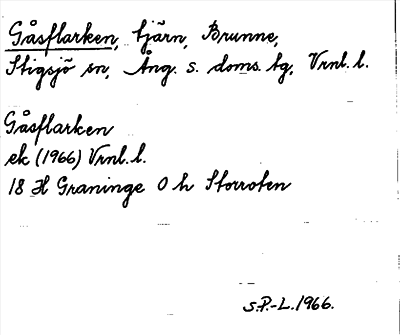 Gåsflarken, tjärn, Brunne,
Stigsjö sn, Ång. s. doms. tg, Vrnl. l.
Gåsflarken
ek (1966) Vrnl. l.
18 H Graninge 0 h Storroten
S.P.-L. 1966.